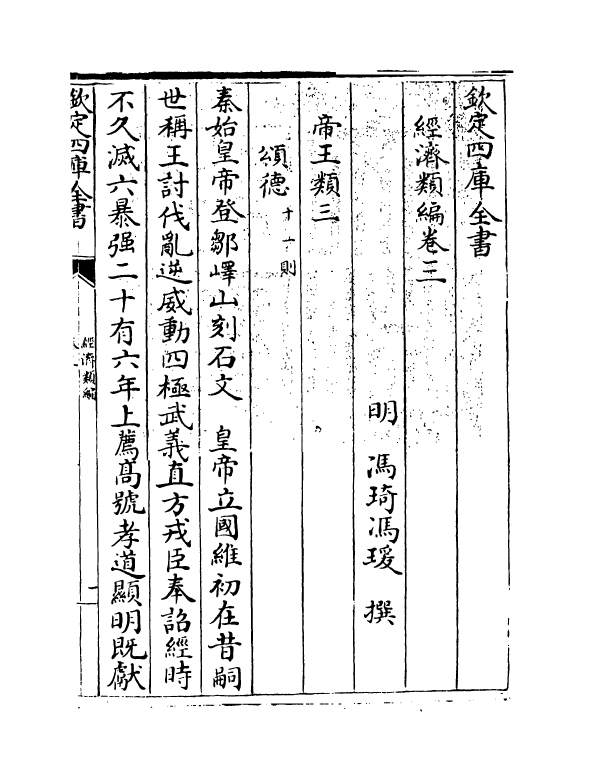 欽定四庫全書
經濟類編卷三
明　馮琦馮瑗　撰
帝王類三
頌德十一則
秦始皇帝登鄒嶧山刻石文　皇帝立國維初在昔嗣
世稱王討伐亂逆威動四極武義直方戎臣奉詔經時
不久滅六暴强二十有六年上薦髙號孝道顯明既獻
欽定四庫全書
經濟類編
一